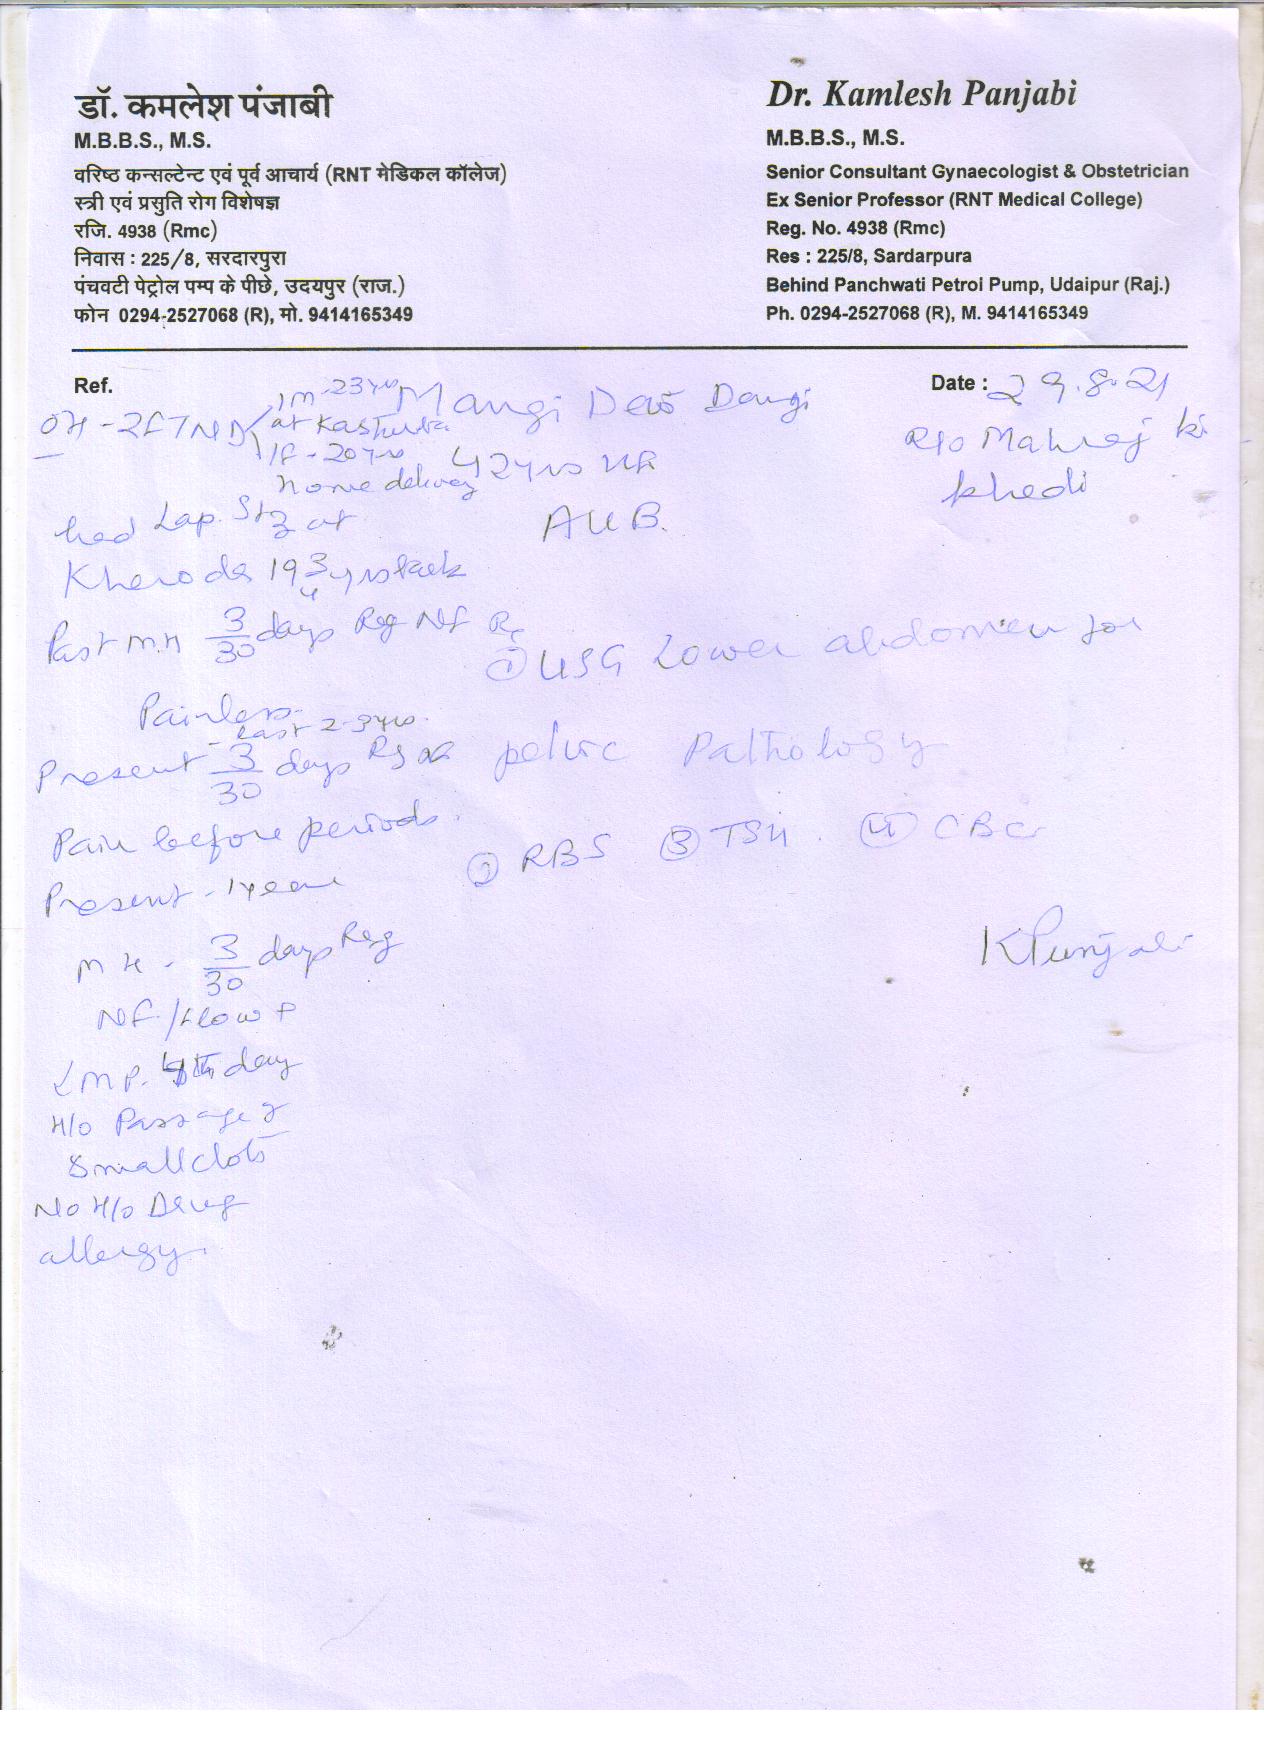 डॉ. कमलेश पंजाबी
M.B.B.S., M.S.
वरिष्ठ कन्सल्टेन्ट एवं पूर्व आचार्य (RNT मेडिकल कॉलेज)
स्त्री एवं प्रसुति रोग विशेषज्ञ
रजि. 4938 (Rmc)
निवास : 225/8, सरदारपुरा
पंचवटी पेट्रोल पम्प के पीछे, उदयपुर (राज.)
फोन 0294-2527068 (R), मो. 9414165349
Dr. Kamlesh Panjabi
M.B.B.S., M.S.
Senior Consultant Gynaecologist & Obstetrician
Ex Senior Professor (RNT Medical College)
Reg. No. 4938 (Rmc)
Res : 225/8, Sardarpura
Behind Panchwati Petrol Pump, Udaipur (Raj.)
Ph. 0294-2527068 (R), M. 9414165349
Ref.
Date : 29.8.21
Mangi Devi Dangi
R/o Mahraj ki
khedi
42 yrs
AUB.
OH - 2FTND
1m - 23 yrs
at Kasturba
1f - 20 yrs
home delivery
had Lap. Stz at
Kheroda 19
Past M.H 3/30 days Reg NF
Painless
last 2-3 yrs.
Present 3/30 days Reg
Pain before periods.
Present - 1 year
MH - 3/30 days Reg
NF/flow +
LMP. day
H/o Passage of
small clots
No H/o Drug
allergy.
Rx
① USG Lower abdomen for
pelvic Pathology
② RBS ③ TSH. ④ CBC
KPunjabi